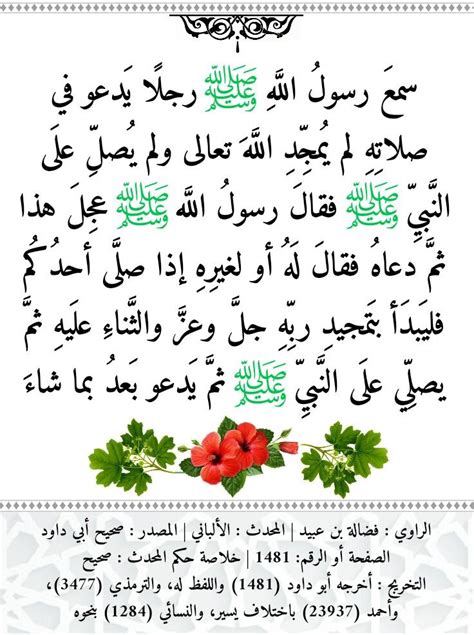 سمعَ رسولُ اللَّهِ ﷺ رجلًا يَدعو في
صلاتِهِ لم يُمجِّدِ اللَّهَ تعالى ولم يُصلِّ علَى
النَّبيِّ ﷺ فقالَ رسولُ اللَّه ﷺ عجِلَ هذا
ثمَّ دعاهُ فقالَ لَهُ أو لغيرِهِ إذا صلَّى أحدُكُم
فليَبدَأ بتَمجيدِ ربِّهِ جلَّ وعزَّ والثَّناءِ علَيهِ ثمَّ
يصلِّي علَى النَّبيِّ ﷺ ثمَّ يَدعو بَعدُ بما شاءَ
الراوي : فضالة بن عبيد | المحدث : الألباني | المصدر : صحيح أبي داود
الصفحة أو الرقم: 1481 | خلاصة حكم المحدث : صحيح
التخريج : أخرجه أبو داود (1481) واللفظ له، والترمذي (3477)،
وأحمد (23937) باختلاف يسير، والنسائي (1284) بنحوه